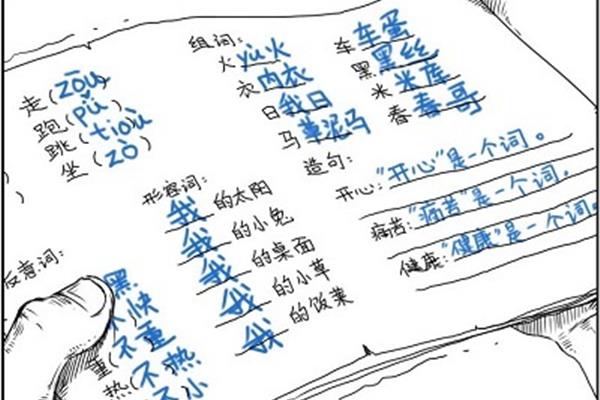 走(zōu)
跑(pǔ)
跳(tioù)
坐(zò)
组词:
火yù火
衣内衣
日我日
马草泥马
车车蛋
黑黑丝
米米库
春春哥
造句:
开心:"开心"是一个词。
痛苦:"痛苦"是一个词.
健康:"健康"是一个词.
形容词:
我的太阳
我的小兔
我的桌面
我的小草
我的饭菜
反意词:
黑
不快
重(不重
热(不热
不小